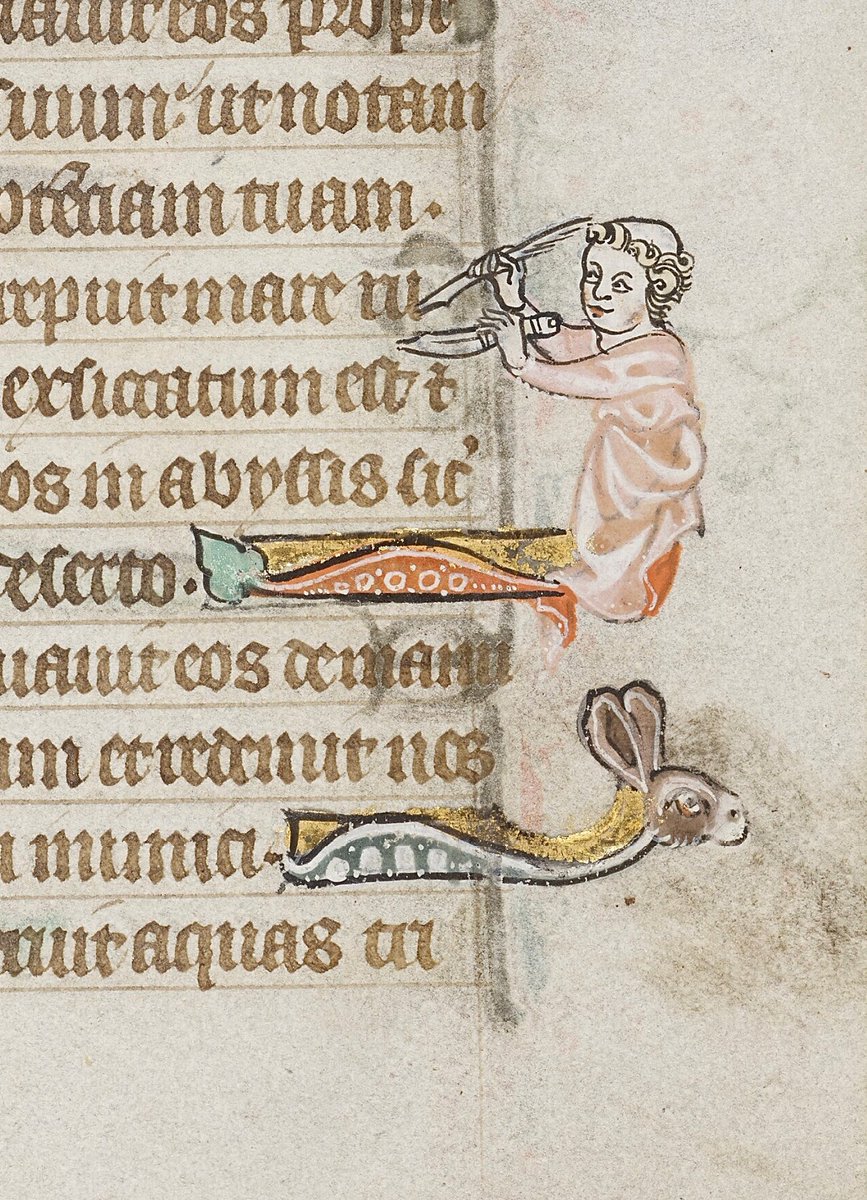 lauit eos propt
suum: ut notam
otētiam tuam.
repuit mare ru
exsiccatum est et
os in abyssis sic'
deserto.
uauit eos de manu
um et redemit
inimici.
ruit aquas tri